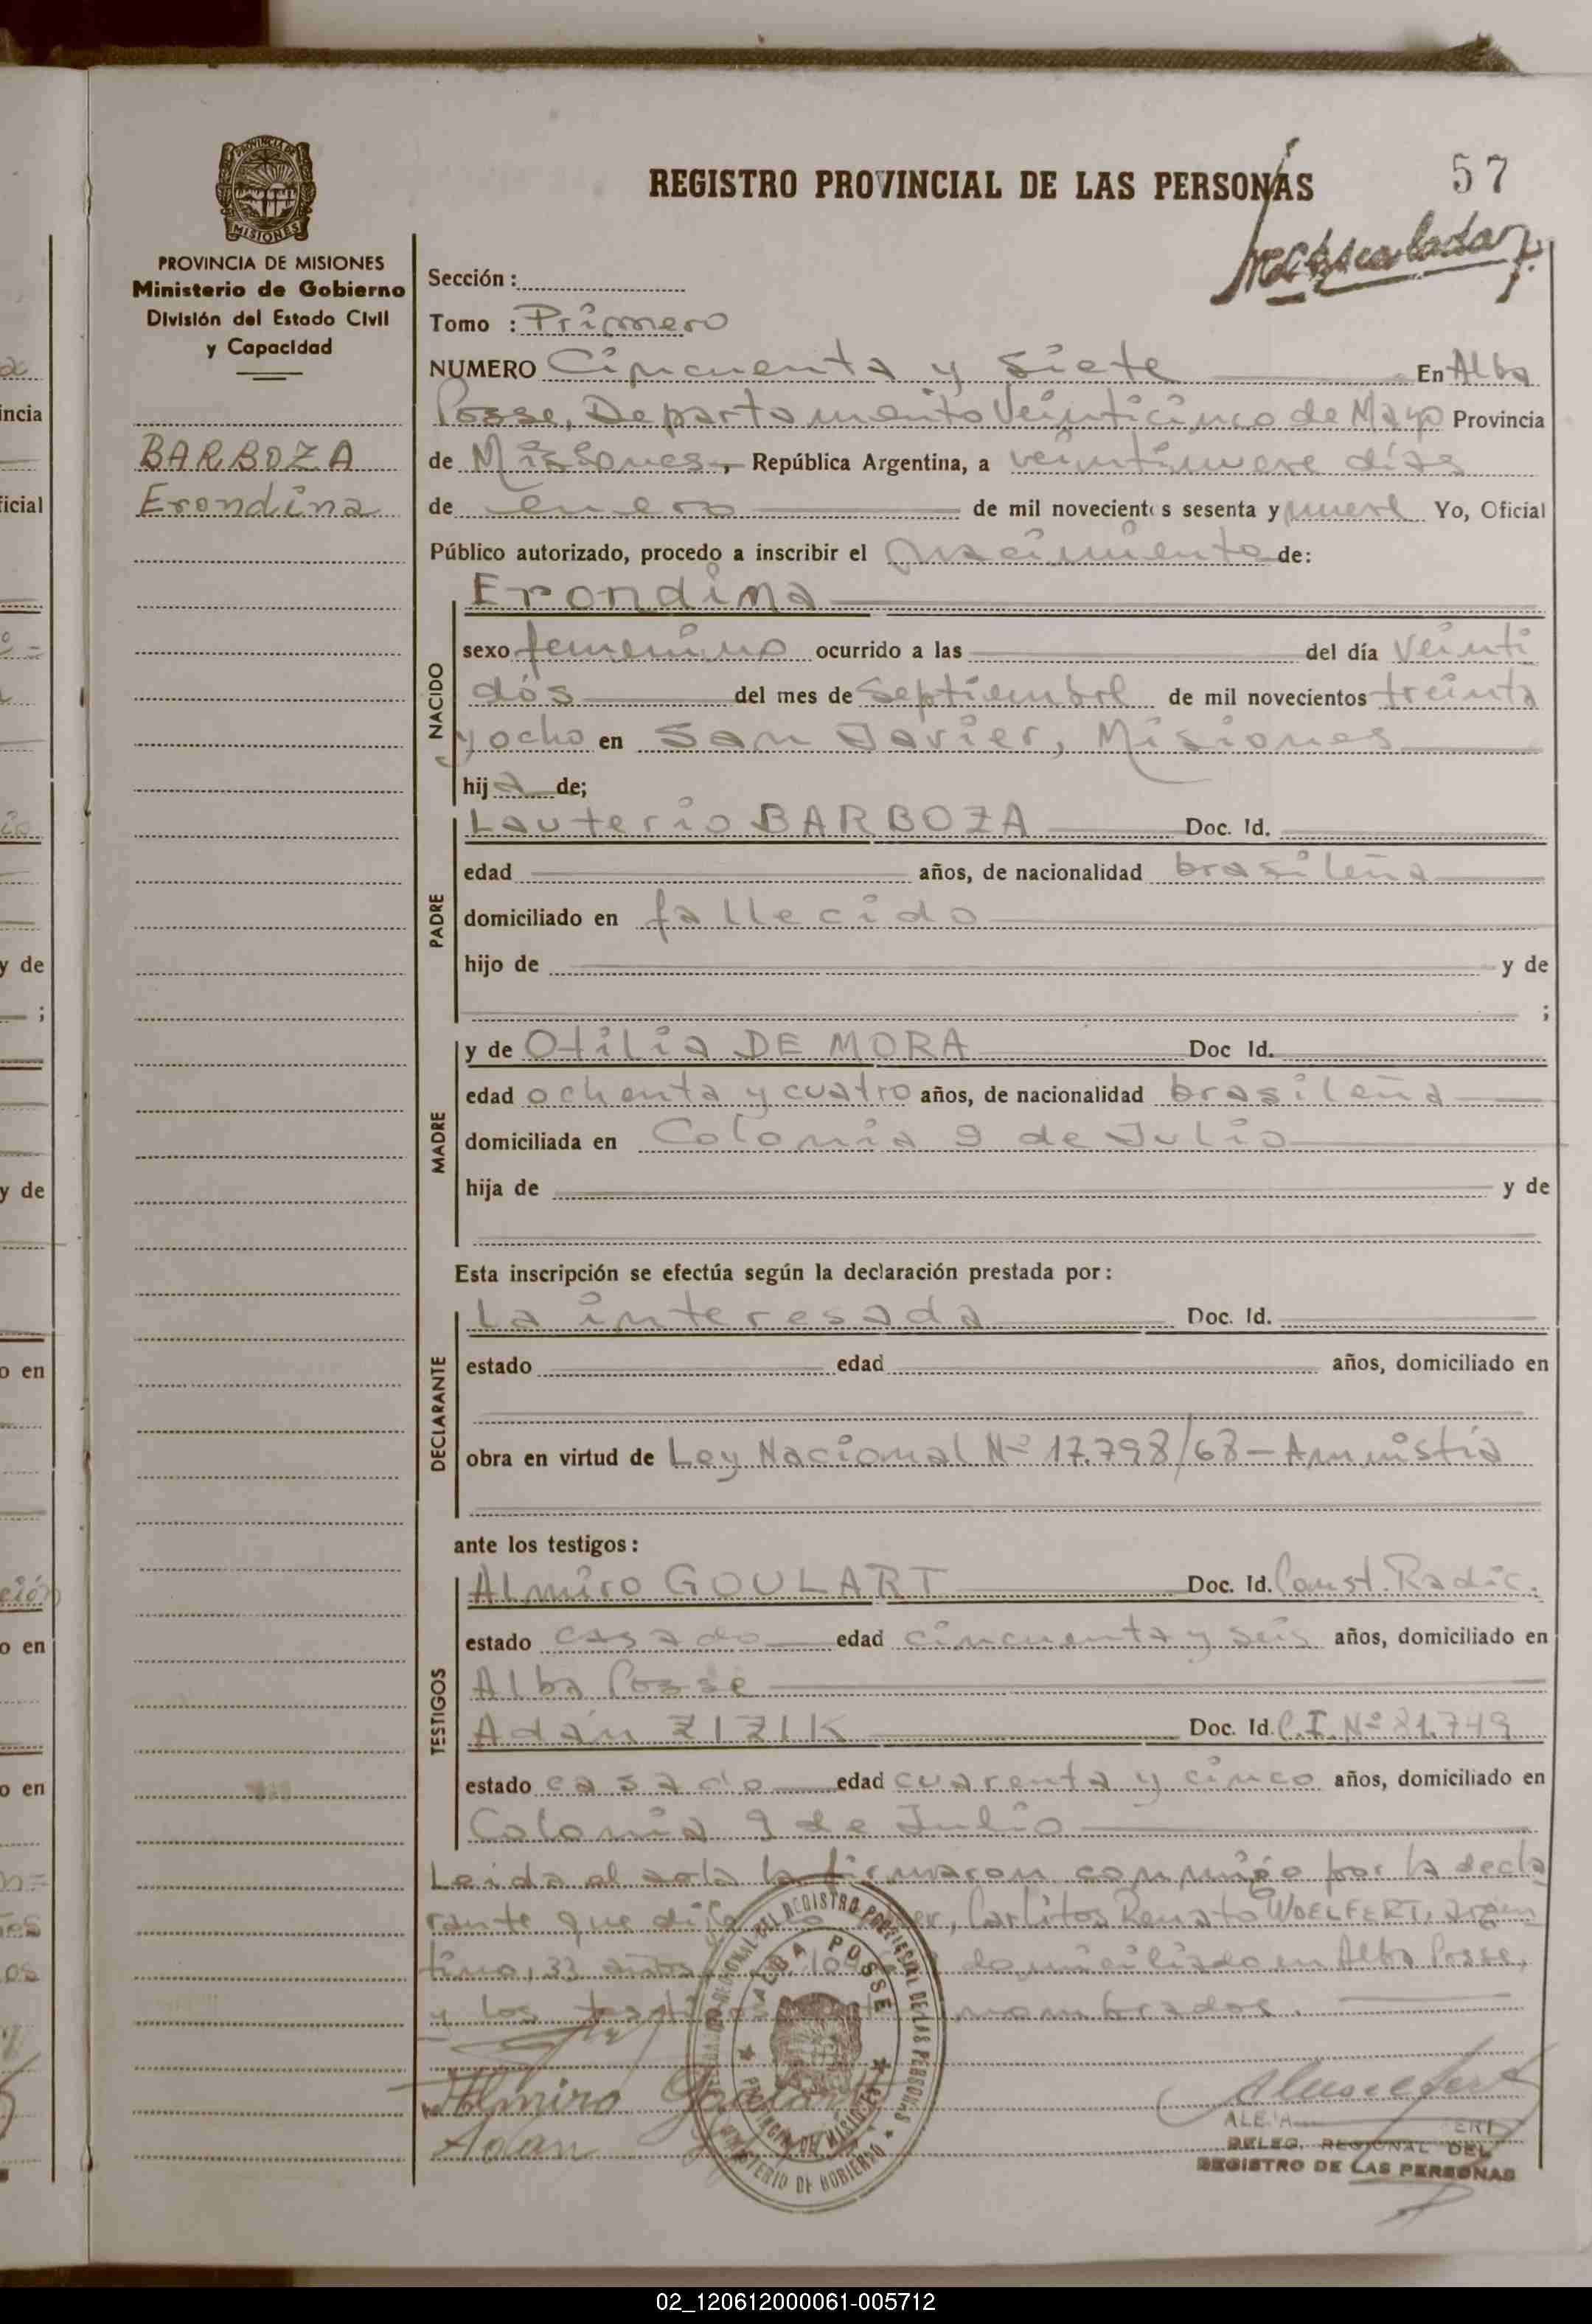 57
REGISTRO PROVINCIAL DE LAS PERSONAS
PROVINCIA DE MISIONES
Ministerio de Gobierno
División del Estado Civil
y Capacidad
BARBOZA
Erondina
Sección :
Tomo : Primero
NUMERO Cincuenta y siete En Alba
Posse, Departamento Veinticinco de Mayo Provincia
de Misiones, República Argentina, a veintinueve días
de enero de mil novecientos sesenta y nueve Yo, Oficial
Público autorizado, procedo a inscribir el nacimiento de:
NACIDO
Erondina
sexo femenino ocurrido a las del día veinti
dós del mes de septiembre de mil novecientos treinta
y ocho en San Javier, Misiones
hija de;
PADRE
Lauterio BARBOZA Doc. Id.
edad años, de nacionalidad brasileña
domiciliado en fallecido
hijo de y de
;
MADRE
y de Otilia DE MORA Doc Id.
edad ochenta y cuatro años, de nacionalidad brasileña
domiciliada en Colonia 9 de Julio
hija de y de
Esta inscripción se efectúa según la declaración prestada por:
DECLARANTE
La interesada Doc. Id.
estado edad años, domiciliado en
obra en virtud de Ley Nacional Nº 17.798/68 - Amnistía
ante los testigos:
TESTIGOS
Almiro GOULART Doc. Id. Const. Radic.
estado casado edad cincuenta y seis años, domiciliado en
Alba Posse
Adán ZIZIK Doc. Id. C.I. Nº 21.749
estado casado edad cuarenta y cinco años, domiciliado en
Colonia 9 de Julio
Leida el acta la firmaron conmigo por la decla
rante que dijo no Carlitos Renato WOELFERT, argen
tino, 33 años domiciliado en Alba Posse,
y los testigos nombrados.
ALBA POSSE
PROVINCIA DE MISIONES
MINISTERIO DE GOBIERNO
Almiro Goulart
Adan
DELEG. REGIONAL DEL
REGISTRO DE LAS PERSONAS
02_120612000061-005712